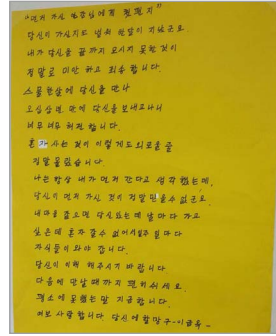 "먼저 가신 영감님에게 첫 편지"
당신이 가신지도 넉달 반달이 지났군요.
내가 당신을 끝까지 모시지 못한것이
정말로 미안 하고 죄송 합니다.
스물한살에 당신을 만나
오십삼년 만에 당신을 보내고나니
너무너무 허전 합니다.
혼자 사는 것이 이렇게도 외로운줄
정말 몰랐습니다.
나는 항상 내가 먼저 간다고 생각 했는데,
당신이 먼저 가신 것이 정말 믿을수 없군요.
내 마음 같으면 당신 있는데 날마다 가고
싶은데 혼자 갈수 없어서 일주일 마다
자식들이 와야 갑니다.
당신이 이해 해주시기 바랍니다
다음에 만날때 까지 편히 쉬세요.
평소에 못했는 말 지금 합니다.
여보 사랑합니다 당신에 할망구-이금옥-